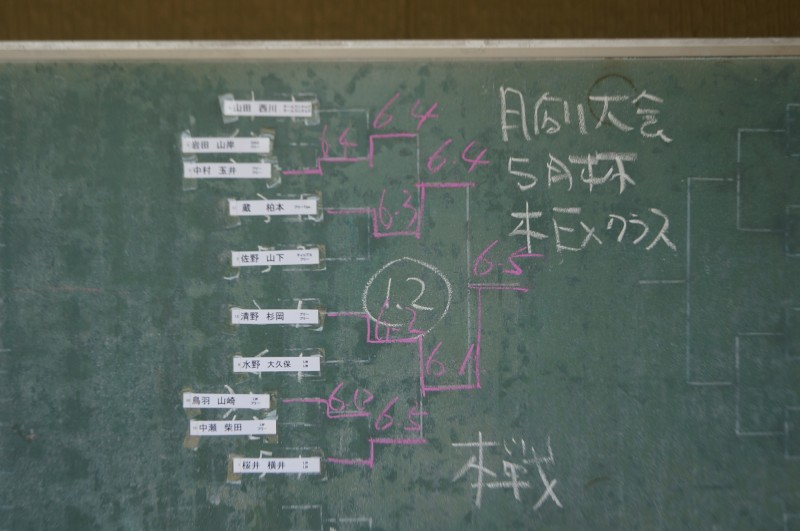 山田 西川
6.4
月例大会
岩田 山岸
6.4
6.4
中村 玉井
5月杯
蔵 柏本
6.3
本Exクラス
佐野 山下
6.5
1.2
清野 杉岡
6.2
水野 大久保
6.1
鳥羽 山崎
6.0
中瀬 柴田
6.5
本戦
桜井 横井